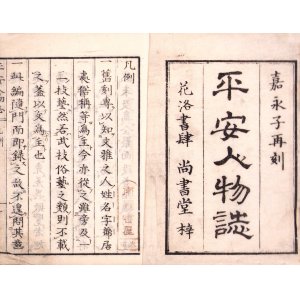 嘉永子再刻
平安人物誌
花洛書肆 尚書堂 梓
凡例
一舊刻專以知文雅之人姓名字號居
處俗稱等為主今亦從之雖旁及
技藝然若武技俗藝之類則不載
之蓋以文為主也
一編隨門而即錄之故不遑問其